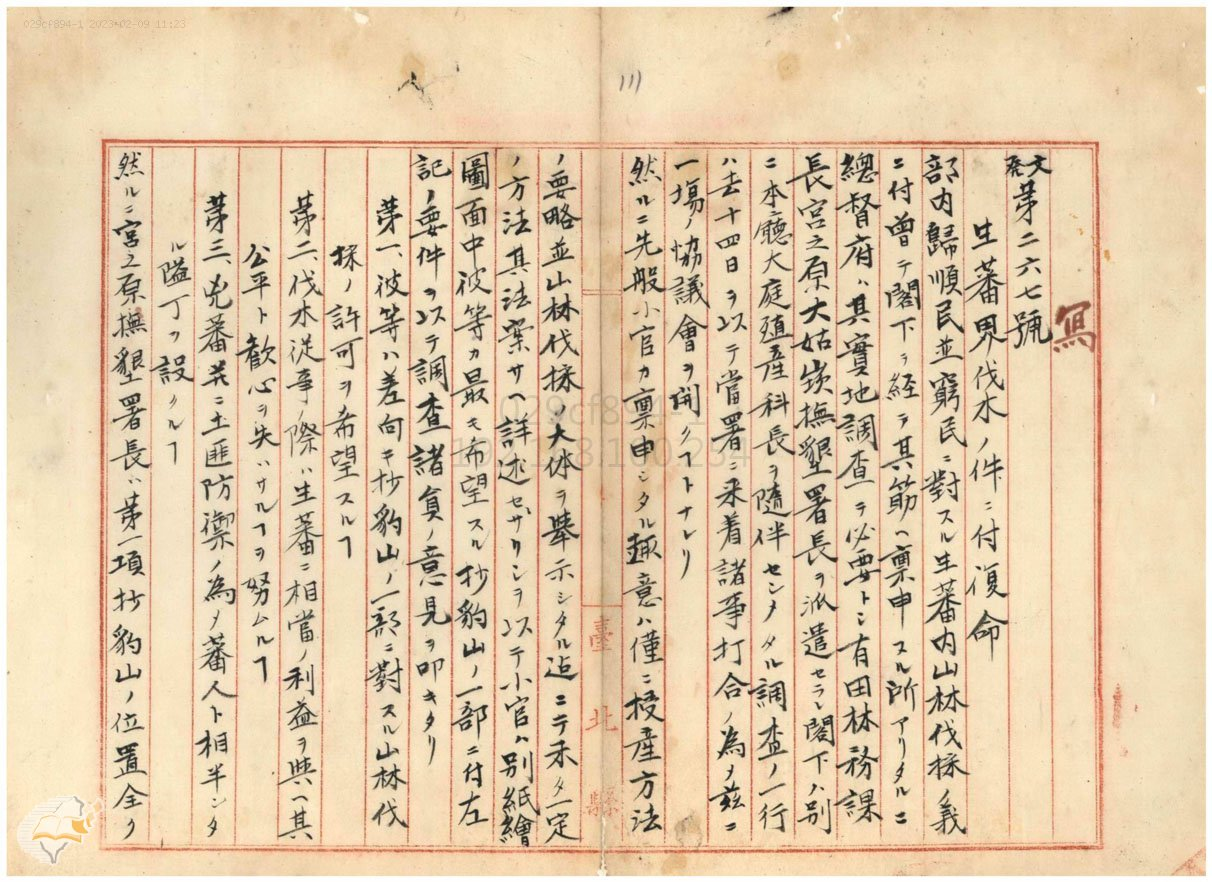 029cf894-1 2023-02-09 11:23
111
寫
文発第二六七號
生蕃界伐木ノ件ニ付復命
部内歸順民並窮民ニ對スル生蕃内山林伐採ノ義
ニ付曾テ閣下ヲ経テ其筋ヘ禀申スル所アリタルニ
總督府ハ其實地調査ヲ必要トシ有田林務課
長宮之原大姑崁撫墾署長ヲ派遣セラレ閣下ハ別
ニ本廳大庭殖産科長ヲ隨伴セシメタル調査ノ一行
ハ去十四日ヲ以テ當署ニ来着諸事打合ノ為メ茲ニ
一場ノ協議會ヲ開クヿトナレリ
然ルニ先般小官カ禀申シタル趣意ハ僅ニ授産方法
ノ要略並山林伐採ノ大体ヲ舉示シタル迄ニテ未タ一定
ノ方法其法案サヘ詳述セザリシヲ以テ小官ハ別紙繪
圖面中彼等カ最モ希望スル抄豹山ノ一部ニ付左
記ノ要件ヲ以テ調査諸員ノ意見ヲ叩キタリ
第一、彼等ハ差向キ抄豹山ノ一部ニ對スル山林伐
採ノ許可ヲ希望スルヿ
第二、伐木従事ノ際ハ生蕃ニ相當ノ利益ヲ與ヘ其
公平ト歓心ヲ失ハサルヿヲ努ムルヿ
第三、兇蕃並ニ土匪防禦ノ為メ蕃人ト相半シタ
ル隘丁ヲ設クルヿ
然ルニ宮之原撫墾署長ハ第一項抄豹山ノ位置全ク
臺北縣
029cf894-1
192.168.100.254